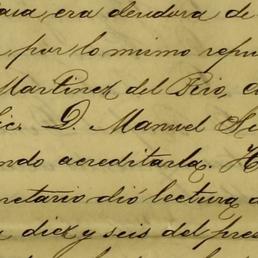 era deudora de
por lo mismo repu
Martinez del Rio,
Lic. D. Manuel
ndo acreditarla. H
retario dió lectura
diez y seis del pres